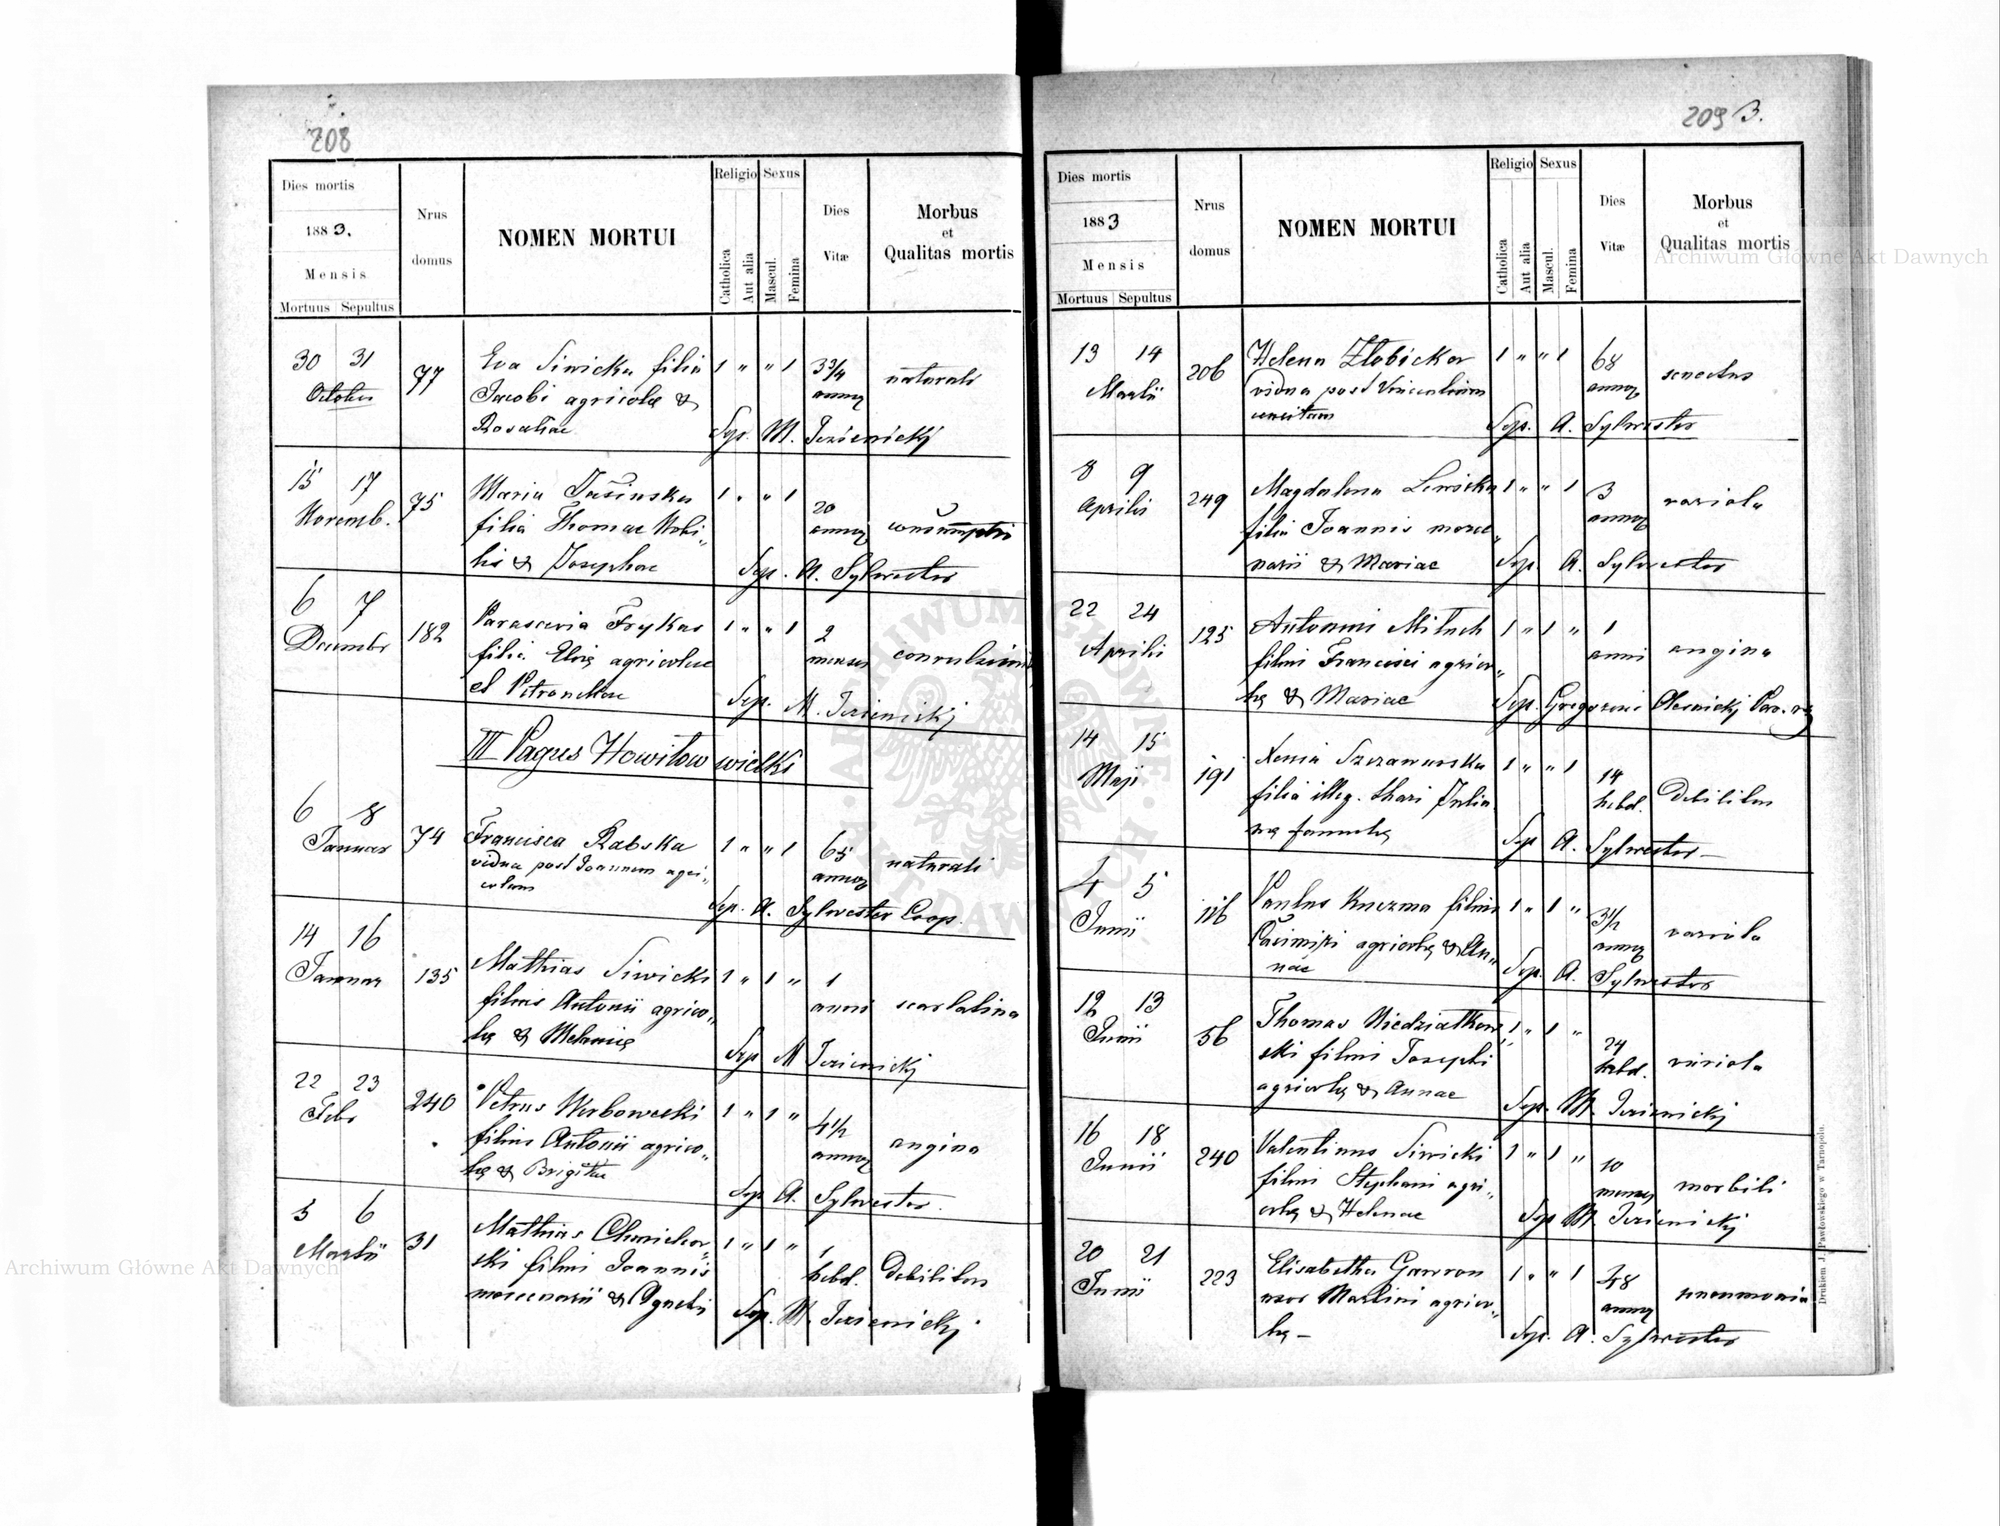 208
Dies mortis
1883.
Mensis
Mortuus Sepultus
Nrus
domus
NOMEN MORTUI
Religio
Catholica
Aut alia
Sexus
Mascul.
Femina
Dies
Vitæ
Morbus
et
Qualitas mortis
30 31 77 Eva Siwicka filia 1 " " 1 3 3/4 naturali
October Jacobi agricolæ & annor
Rosaliae Sep. M. Jezienicki
15 17 75 Maria Jasinska 1 " " 1 20
Novemb. filia Thomae Nobi- annor consumptio
lis & Josephae Sep. A. Sylwester
6 7 182 Parascevia Frykas 1 " " 1 2
Decembr filia Eliæ agricolae menses convulsioni
et Petronelae Sep. M. Jezienicki
III Pagus Howilow wielki
6 8 74 Francisca Rabska 1 " " 1 65 naturali
Januar vidua post Joannem agri- annor
colam Sep. A. Sylwester Coop.
14 16 135 Mathias Siwicki 1 " 1 " 1
Januar filius Antonii agrico- anni scarlatina
læ & Melaniæ Sep M Jezienicki
22 23 240 Petrus Werbowecki 1 " 1 " 4 1/2
Febr filius Antonii agrico- annor angina
læ & Brigitae Sep A. Sylwester
5 6 31 Mathias Chmielow- 1 " 1 " 1
Martii ski filius Joannis hebd. debilitas
mercenarii & Agnetis Sep. M. Jezienicki
209 3.
Dies mortis
1883
Mensis
Mortuus Sepultus
Nrus
domus
NOMEN MORTUI
Religio
Catholica
Aut alia
Sexus
Mascul.
Femina
Dies
Vitæ
Morbus
et
Qualitas mortis
13 14 206 Helena Złobicka 1 " " 1 68 senectus
Martii vidua post Vincentium annor
Sep. A. Sylwester
8 9 249 Magdalena Lewicka 1 " " 1 3 variola
Aprilis filia Joannis merce- annor
narii & Mariae Sep A. Sylwester
22 24 125 Antonius 1 " 1 " 1 angina
Aprilis filius Francisci agrico- anni
læ & Mariae Sep. Gregorius Olesnicki Par.
14 15 191 Xenia 1 " " 1 14
Maji filia illeg. thori Julia- hebd. debilitas
næ famulæ Sep A. Sylwester
4 5 116 Paulus Kuczma filius 1 " 1 " 3 1/2 variola
Junii Casimiri agricolæ & An- annor
nae Sep. A. Sylwester
12 13 56 Thomas Niedziałkow- 1 " 1 " 24
Junii ski filius Josephi hebd. variola
agricolæ & Annae Sep. M. Jezienicki
16 18 240 Valentinus Siwicki 1 " 1 " 10
Junii filius Stephani agri- menses morbili
colæ & Helenae Sep M. Jezienicki
20 21 223 Elisabetha Gawron 1 " " 1 48 pneumonia
Junii uxor Martini agrico- annor
læ - Sep. A. Sylwester
Drukiem J. Pawłowskiego w Tarnopolu.
Archiwum Główne Akt Dawnych
Archiwum Główne Akt Dawnych
ARCHIWUM GŁÓWNE AKT DAWNYCH